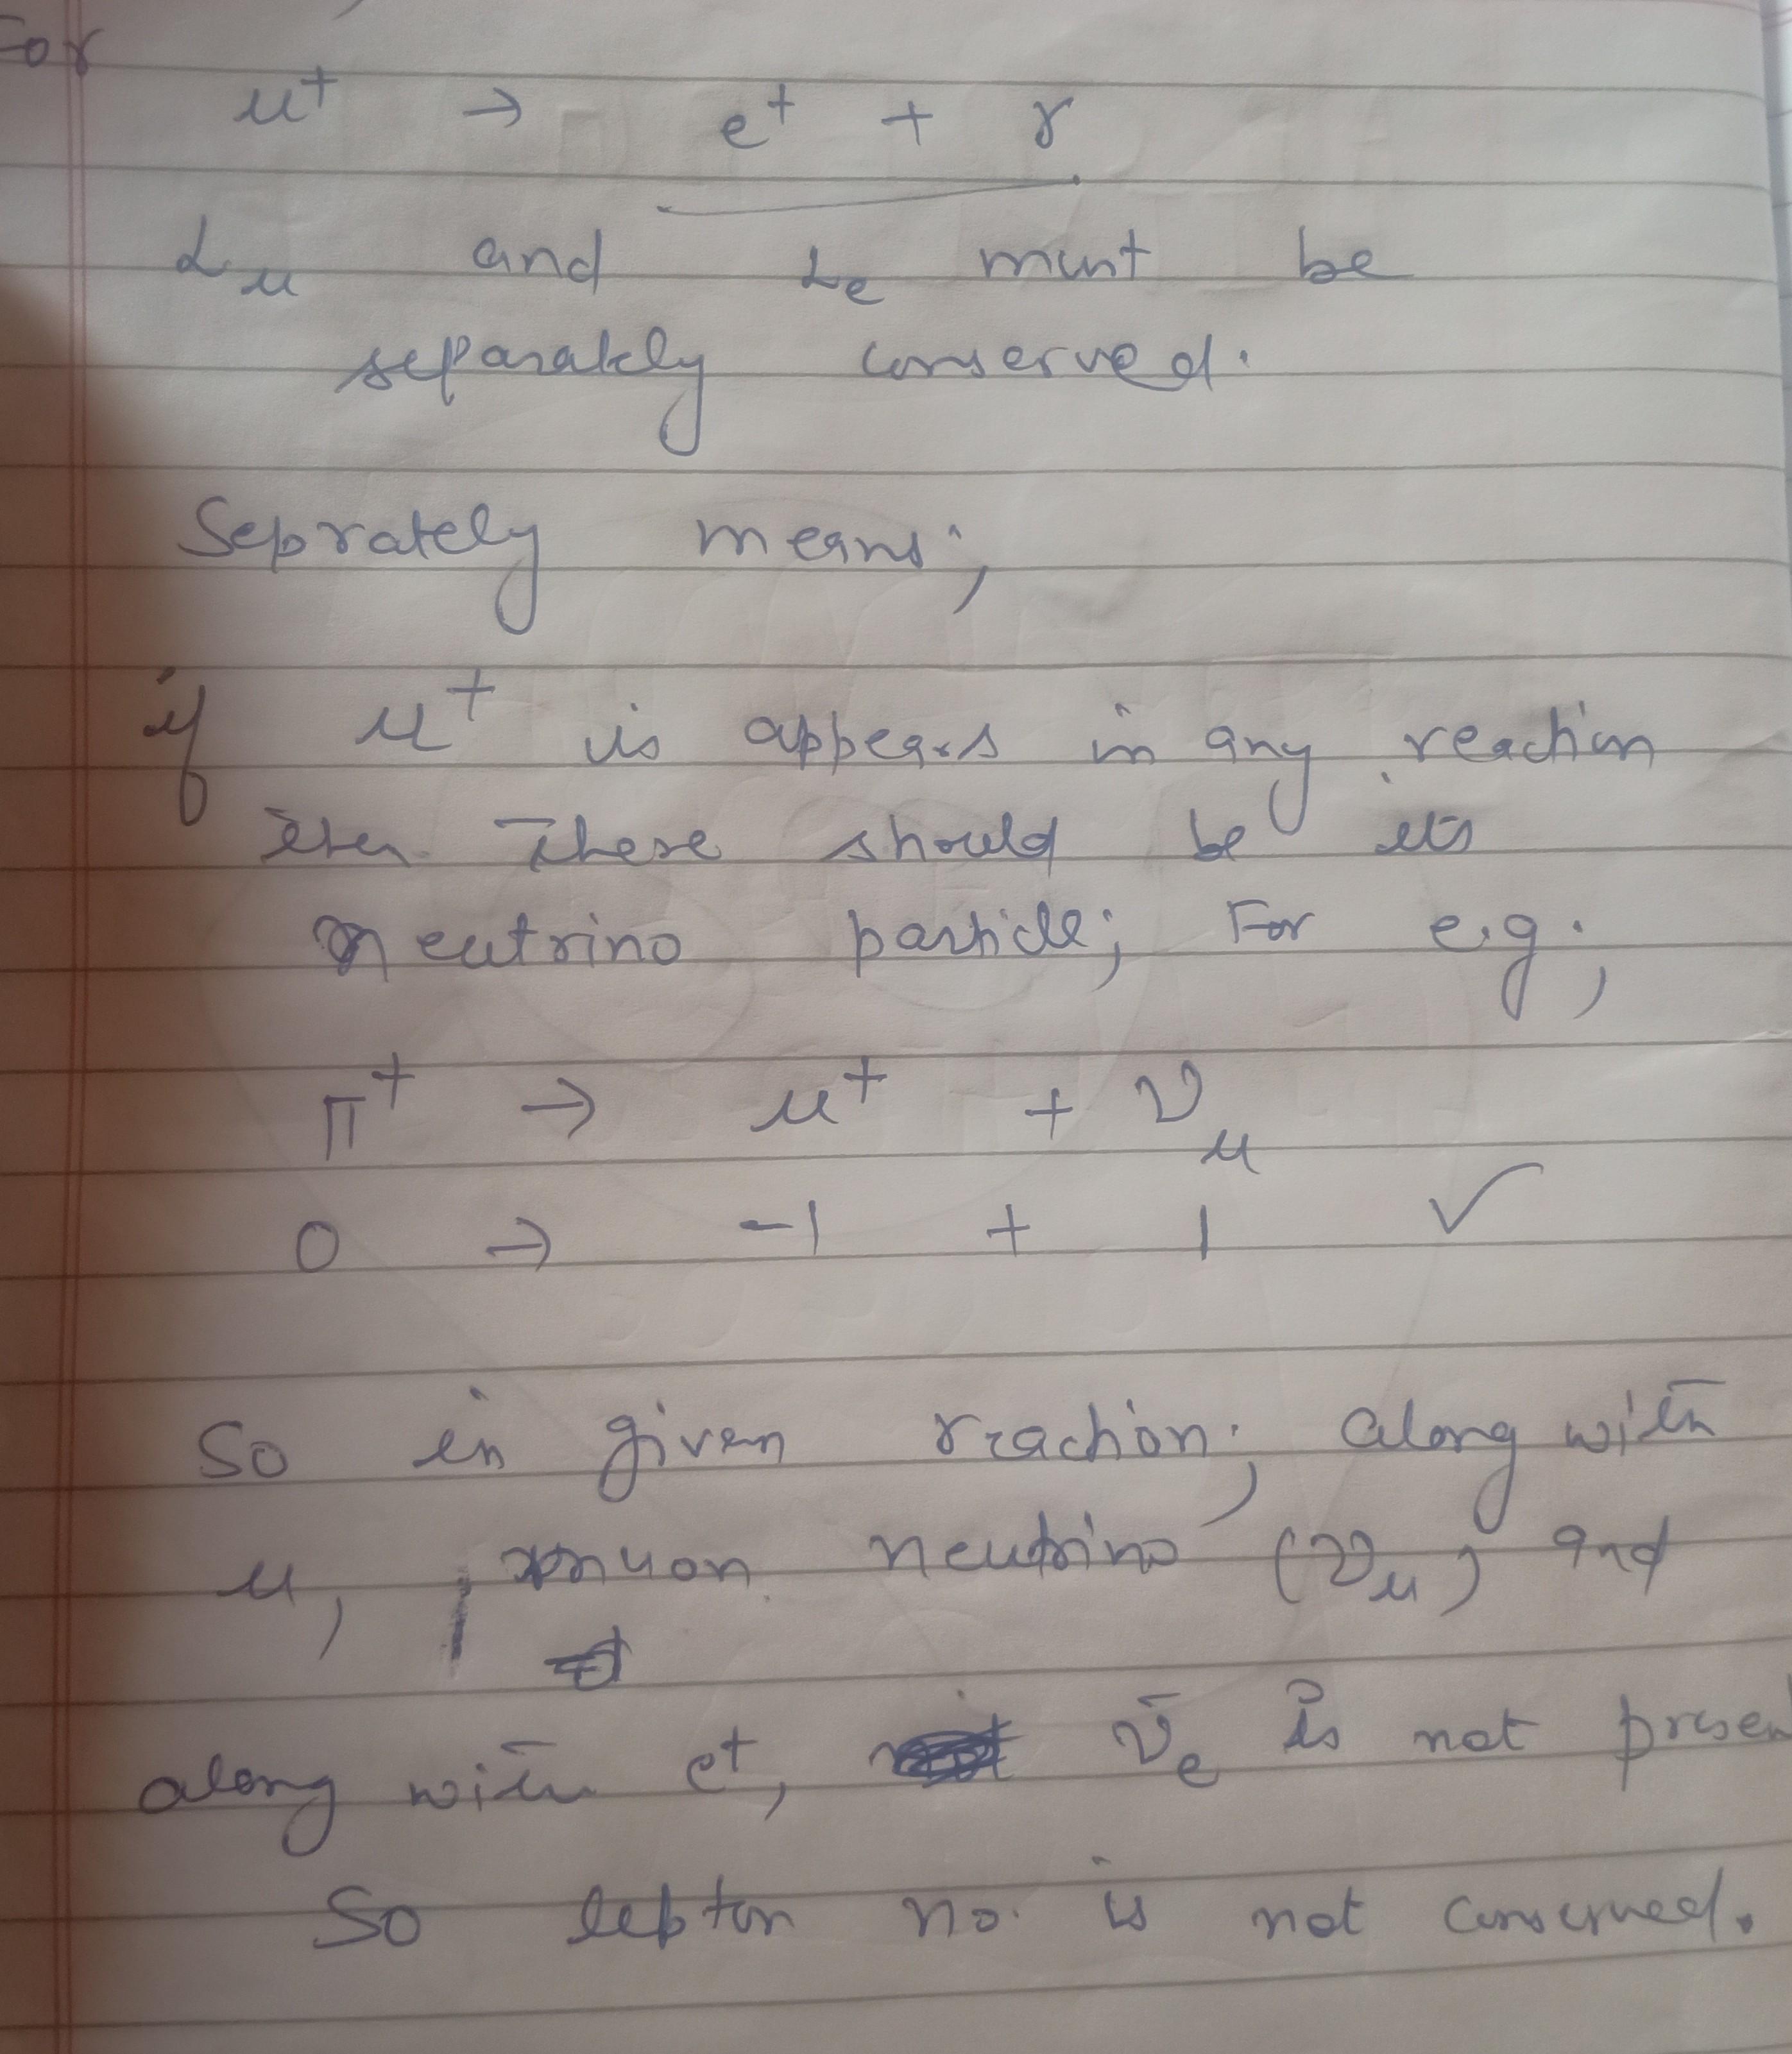 For
μ⁺ → e⁺ + γ
Lμ and Le must be
separately conserved.
Seprately means;
if μ⁺ is appears in any reaction
then there should be its
neutrino particle; For e.g;
π⁺ → μ⁺ + νμ
0 → -1 + 1 ✓
So in given reaction, along with
μ, muon neutrino (νμ) and
along with e⁺, ν̄e is not presen
So lepton no. is not conserved.